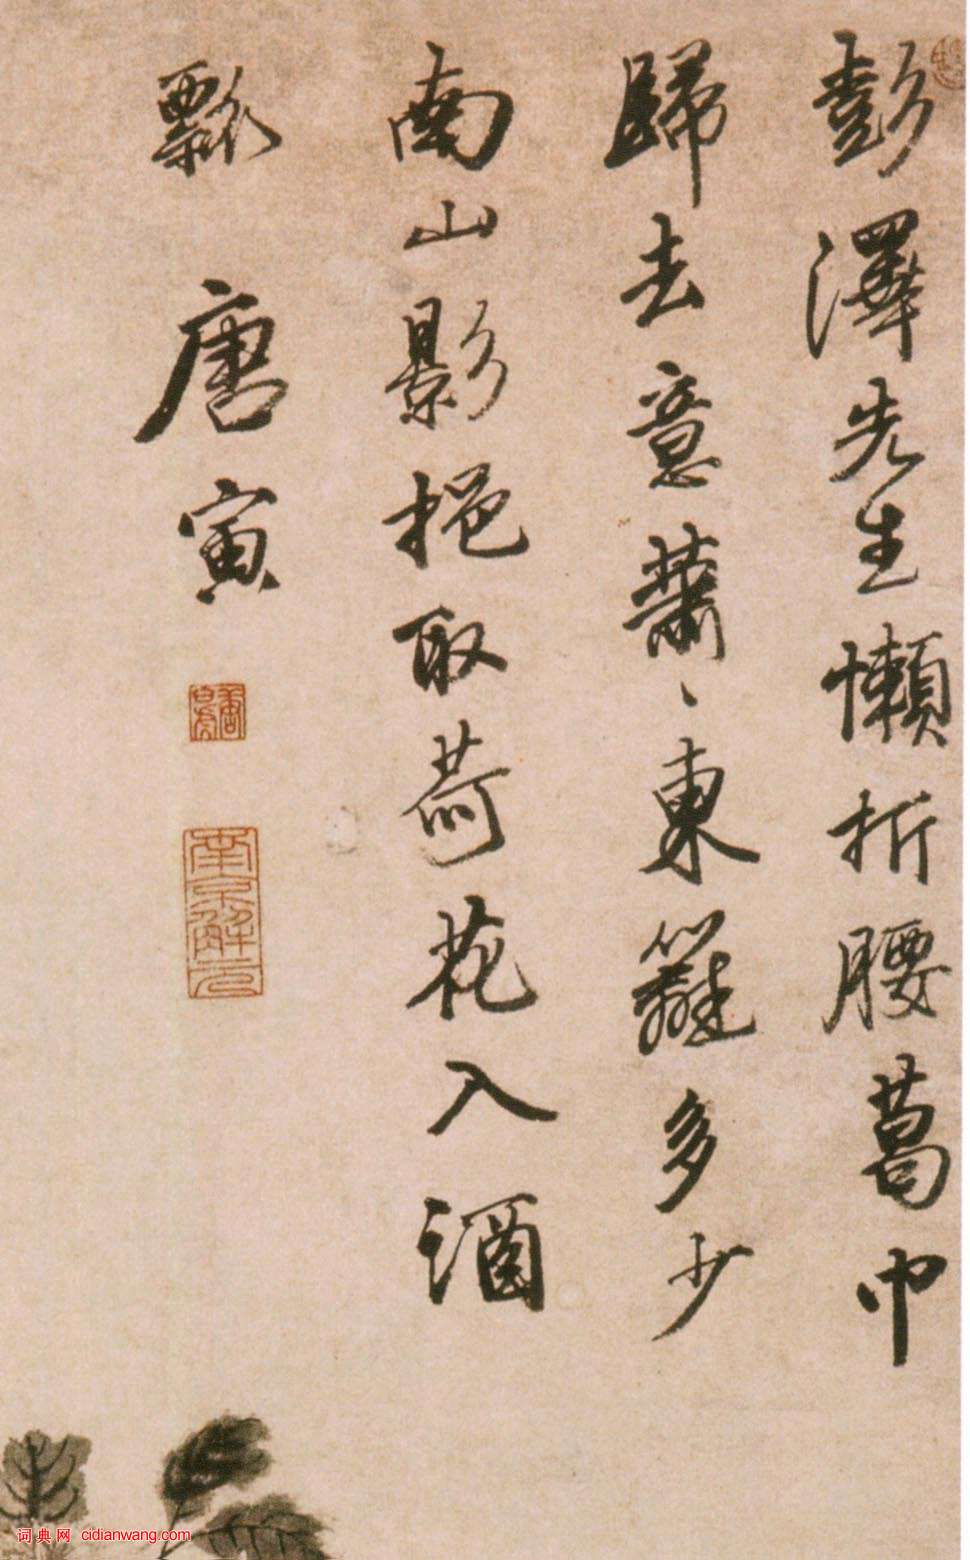 彭澤先生懶折腰葛巾
歸去意蕭〻東籬多少
南山影挹取荷花入酒
瓢 唐寅
唐寅
南京解元
词典网 cidianwang.com